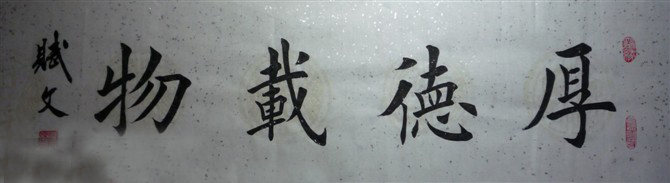 厚德載物
賦文